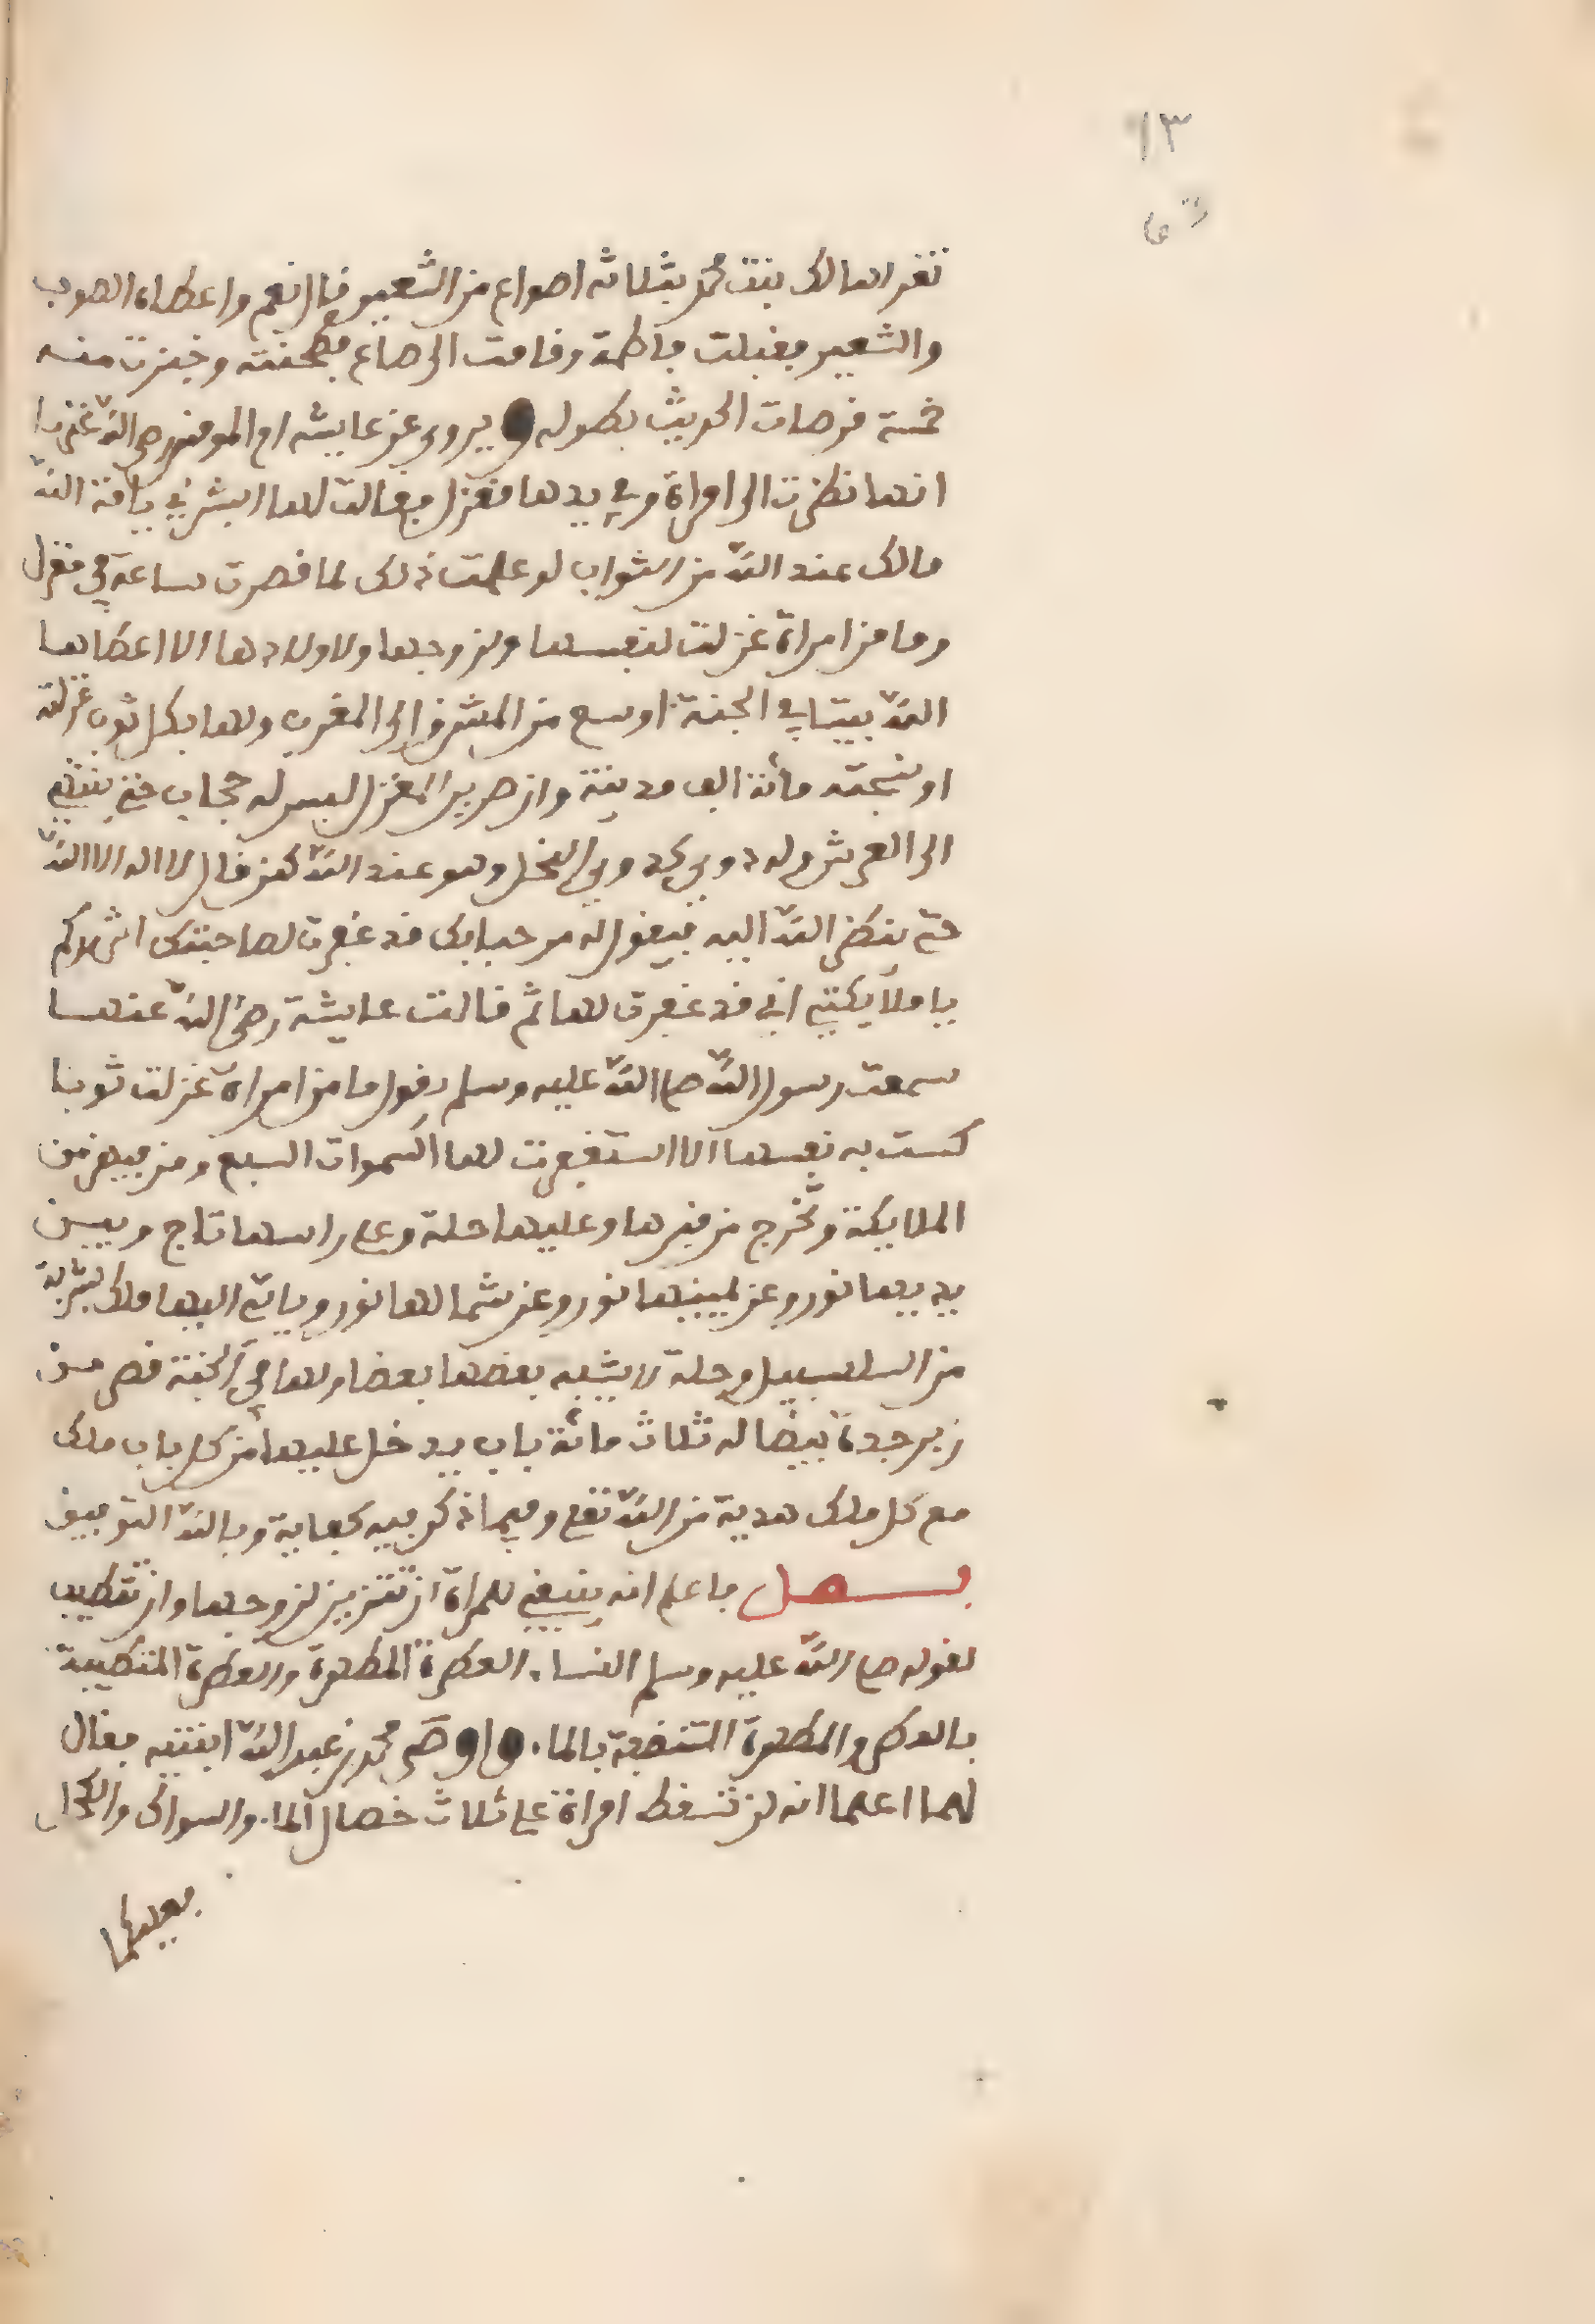 ١٣
تغزلها لك بنت محمد بثلاثه اصواع من الشعير فال نعم واعطاه الصوب
والشعير فقبلت فاطمة وفامت الى صاع فطحنته وخبزت منه
خمسة قرصات الحديث بطوله ويروى عن عايشه ام المومنين رضي الله عنها
انها نظرت الى امراة وفي يدها مغزل فقالت لها ابشري يا امة الله
مالك عند الله من الثواب لو علمت ذلك لما قصرت ساعة في مغزل
وما من امراة غزلت لنفسها ولزوجها ولاولادها الا اعطاها
الله بيتا في الجنة اوسع من المشرق الى المغرب ولها بكل ثوب غزلته
او نسجته مائة الف مدينة وان صرير المغزل ليس له حجاب حتى ينتهي
الى العرش وله دوي كدوي النحل وهو عند الله كمن قال لا اله الا الله
حتى ينظر الله اليه فيقول له مرحبا بك قد غفرت لصاحبتك اشهدكم
يا ملايكتي اني قد غفرت لها ثم قالت عايشة رضي الله عنها
سمعت رسول الله صلى الله عليه وسلم يقول ما من امراة غزلت ثوبا
كست به نفسها الا استغفرت لها السموات السبع ومن فيهن من
الملايكة وتخرج من قبرها وعليها حلة وعلى راسها تاج وبين
يديها نور وعن يمينها نور وعن شمالها نور وياتي اليها ملك بشربة
من السلسبيل وحلة لا يشبه بعضها بعضا ولها في الجنة قصر من
زبرجدة بيضا له ثلاث مائة باب يدخل عليها من كل باب ملك
مع كل ملك هدية من الله تعلى وفيما ذكر فيه كفاية وبالله التوفيق
فصل فاعلم انه ينبغي للمراة ان تتزين لزوجها وان تتطيب
لقوله صلى الله عليه وسلم النساء العطرة المطهرة والعطرة المتطيبة
بالعطر والمطهرة المتنضفة بالماء واوصى محمد بن عبد الله ابنتيه فقال
لهما اعلما انه لن تسقط امراة على ثلاث خصال الماء والسواك والكحل
فعليكما